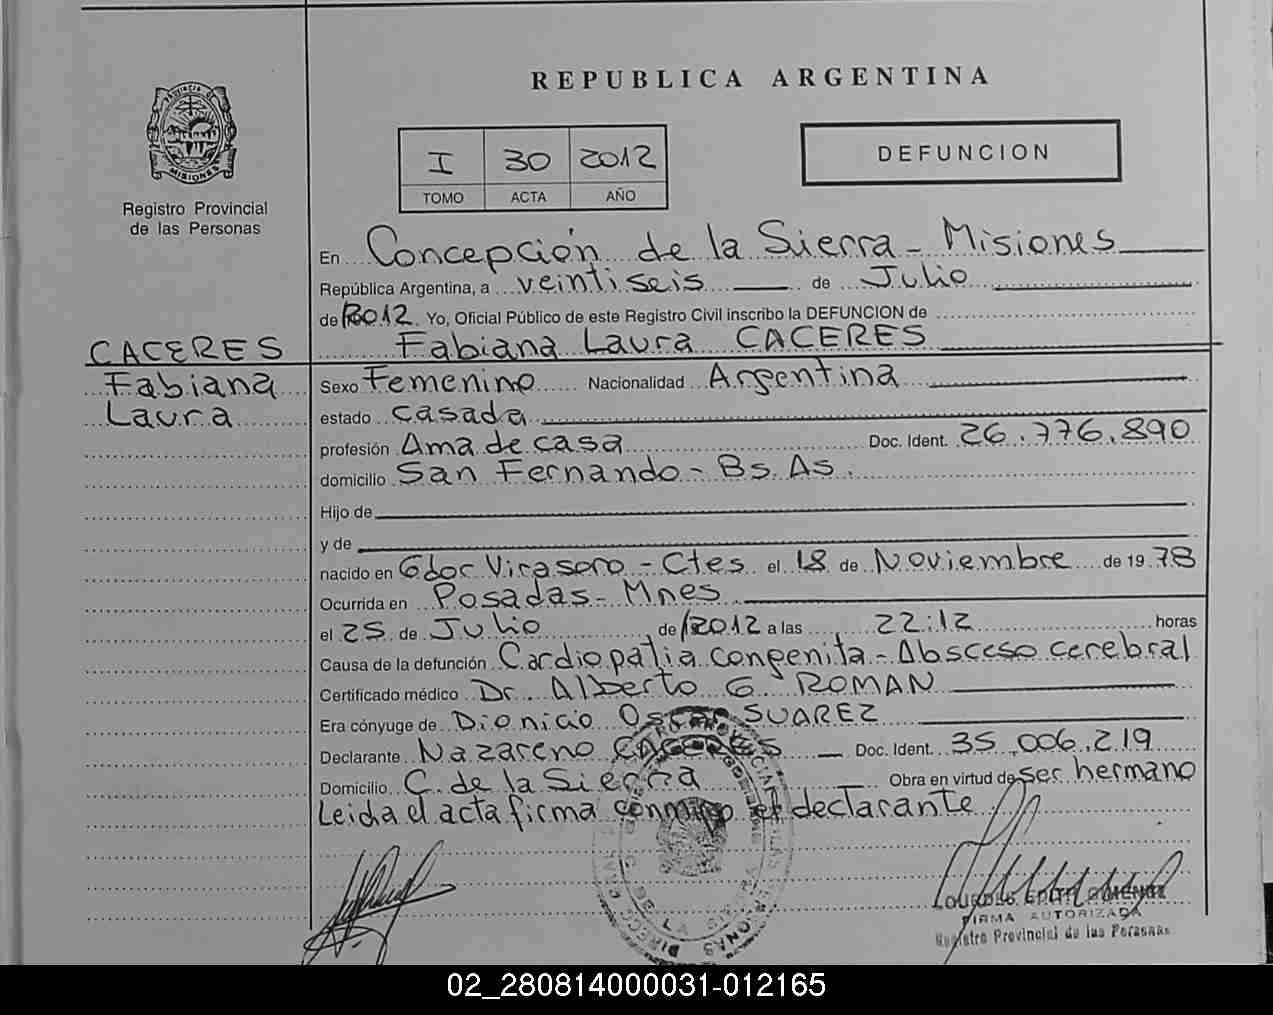 REPUBLICA ARGENTINA
I 30 2012
TOMO ACTA AÑO
DEFUNCION
MISIONES
Registro Provincial
de las Personas
CACERES
Fabiana
Laura
En Concepción de la Sierra - Misiones
República Argentina, a veintiseis de Julio
de 2012 Yo, Oficial Público de este Registro Civil inscribo la DEFUNCION de
Fabiana Laura CACERES
Sexo Femenino Nacionalidad Argentina
estado casada
profesión Ama de casa Doc. Ident. 26.776.890
domicilio San Fernando - Bs. As.
Hijo de
y de
nacido en Gdor Virasoro - Ctes el 18 de Noviembre de 1978
Ocurrida en Posadas - Mnes
el 25 de Julio de 2012 a las 22:12 horas
Causa de la defunción Cardiopatia congenita - Absceso cerebral
Certificado médico Dr. Alberto G ROMAN
Era cónyuge de Dionicio Oscar SUAREZ
Declarante Nazareno CACERES Doc. Ident. 35.006.219
Domicilio C. de la Sierra Obra en virtud de ser hermano
Leida el acta firma conmigo el declarante
FIRMA AUTORIZADA
Registro Provincial de las Personas
02_280814000031-012165